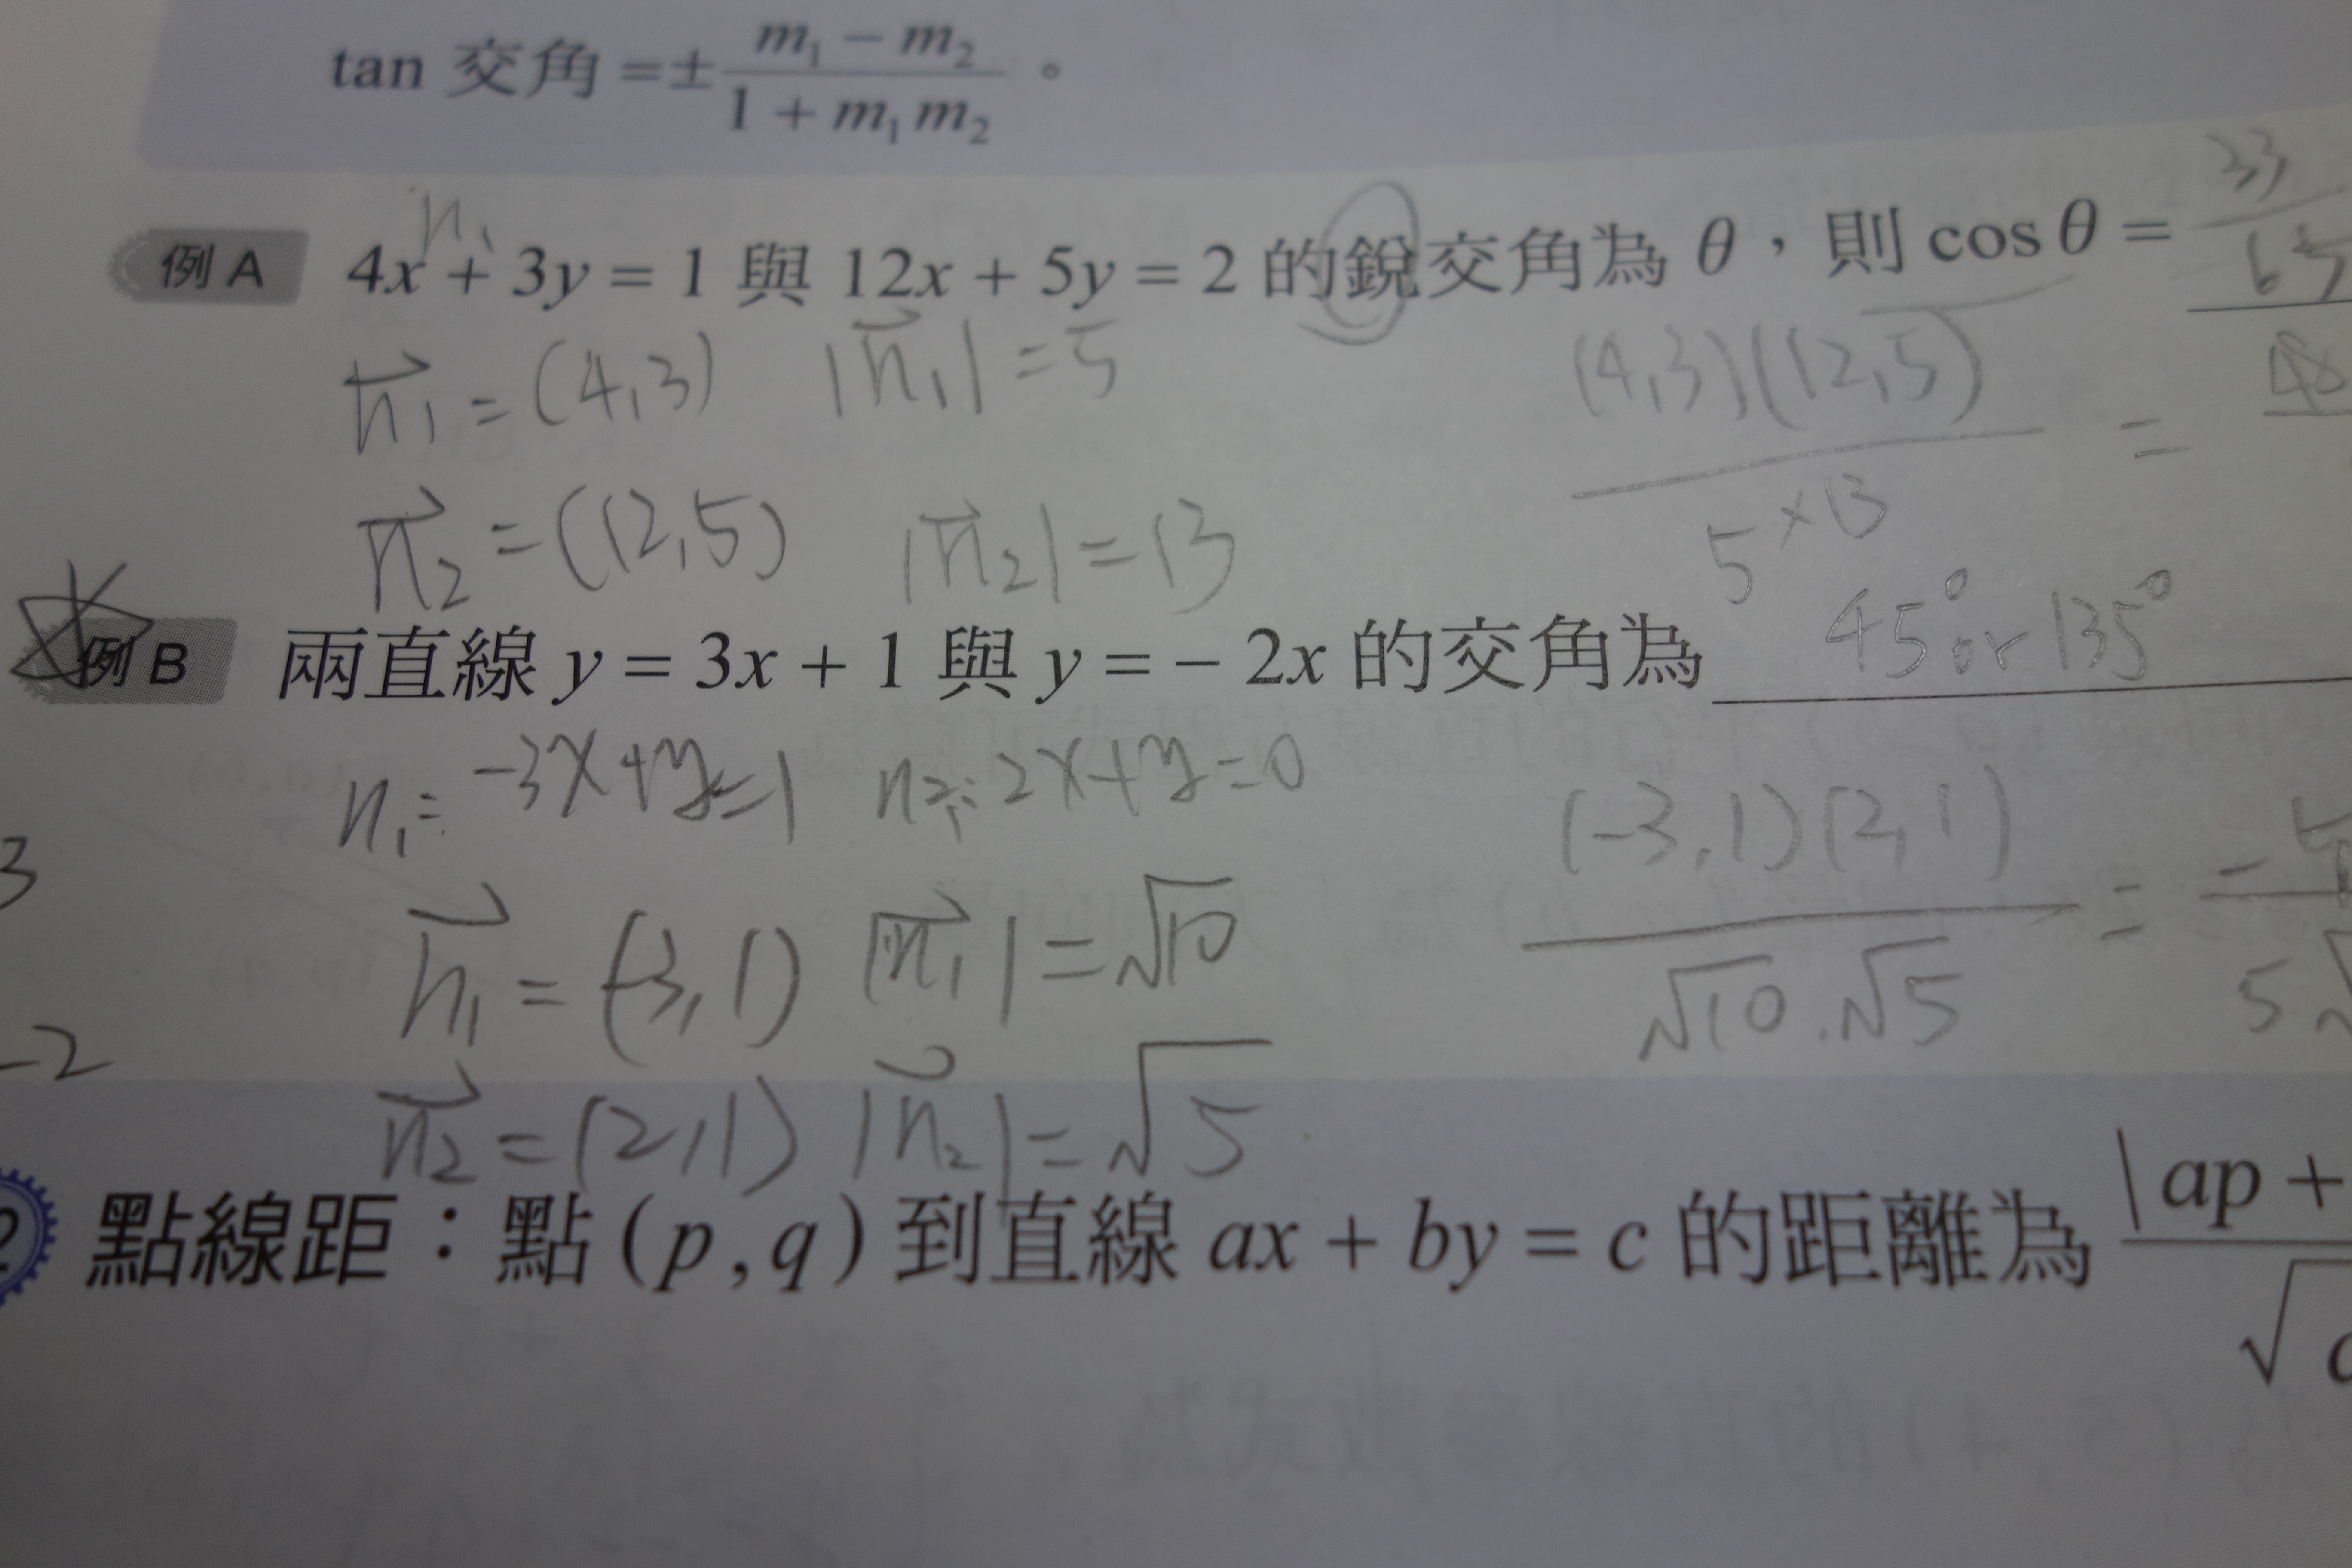 tan 交角 = ± (m₁ − m₂) / (1 + m₁m₂)。
n₁
例 A 4x + 3y = 1 與 12x + 5y = 2 的銳交角為 θ,則 cos θ =
n₁ = (4,3) |n₁| = 5 (4,3)(12,5) / 5×13 =
n₂ = (12,5) |n₂| = 13
例 B 兩直線 y = 3x + 1 與 y = − 2x 的交角為 45° or 135°
n₁: -3x+y=1 n₂: 2x+y=0
n₁ = (-3,1) |n₁| = √10 (-3,1)(2,1) / √10·√5 =
n₂ = (2,1) |n₂| = √5
3
-2
點線距:點 ( p , q ) 到直線 ax + by = c 的距離為 | ap +